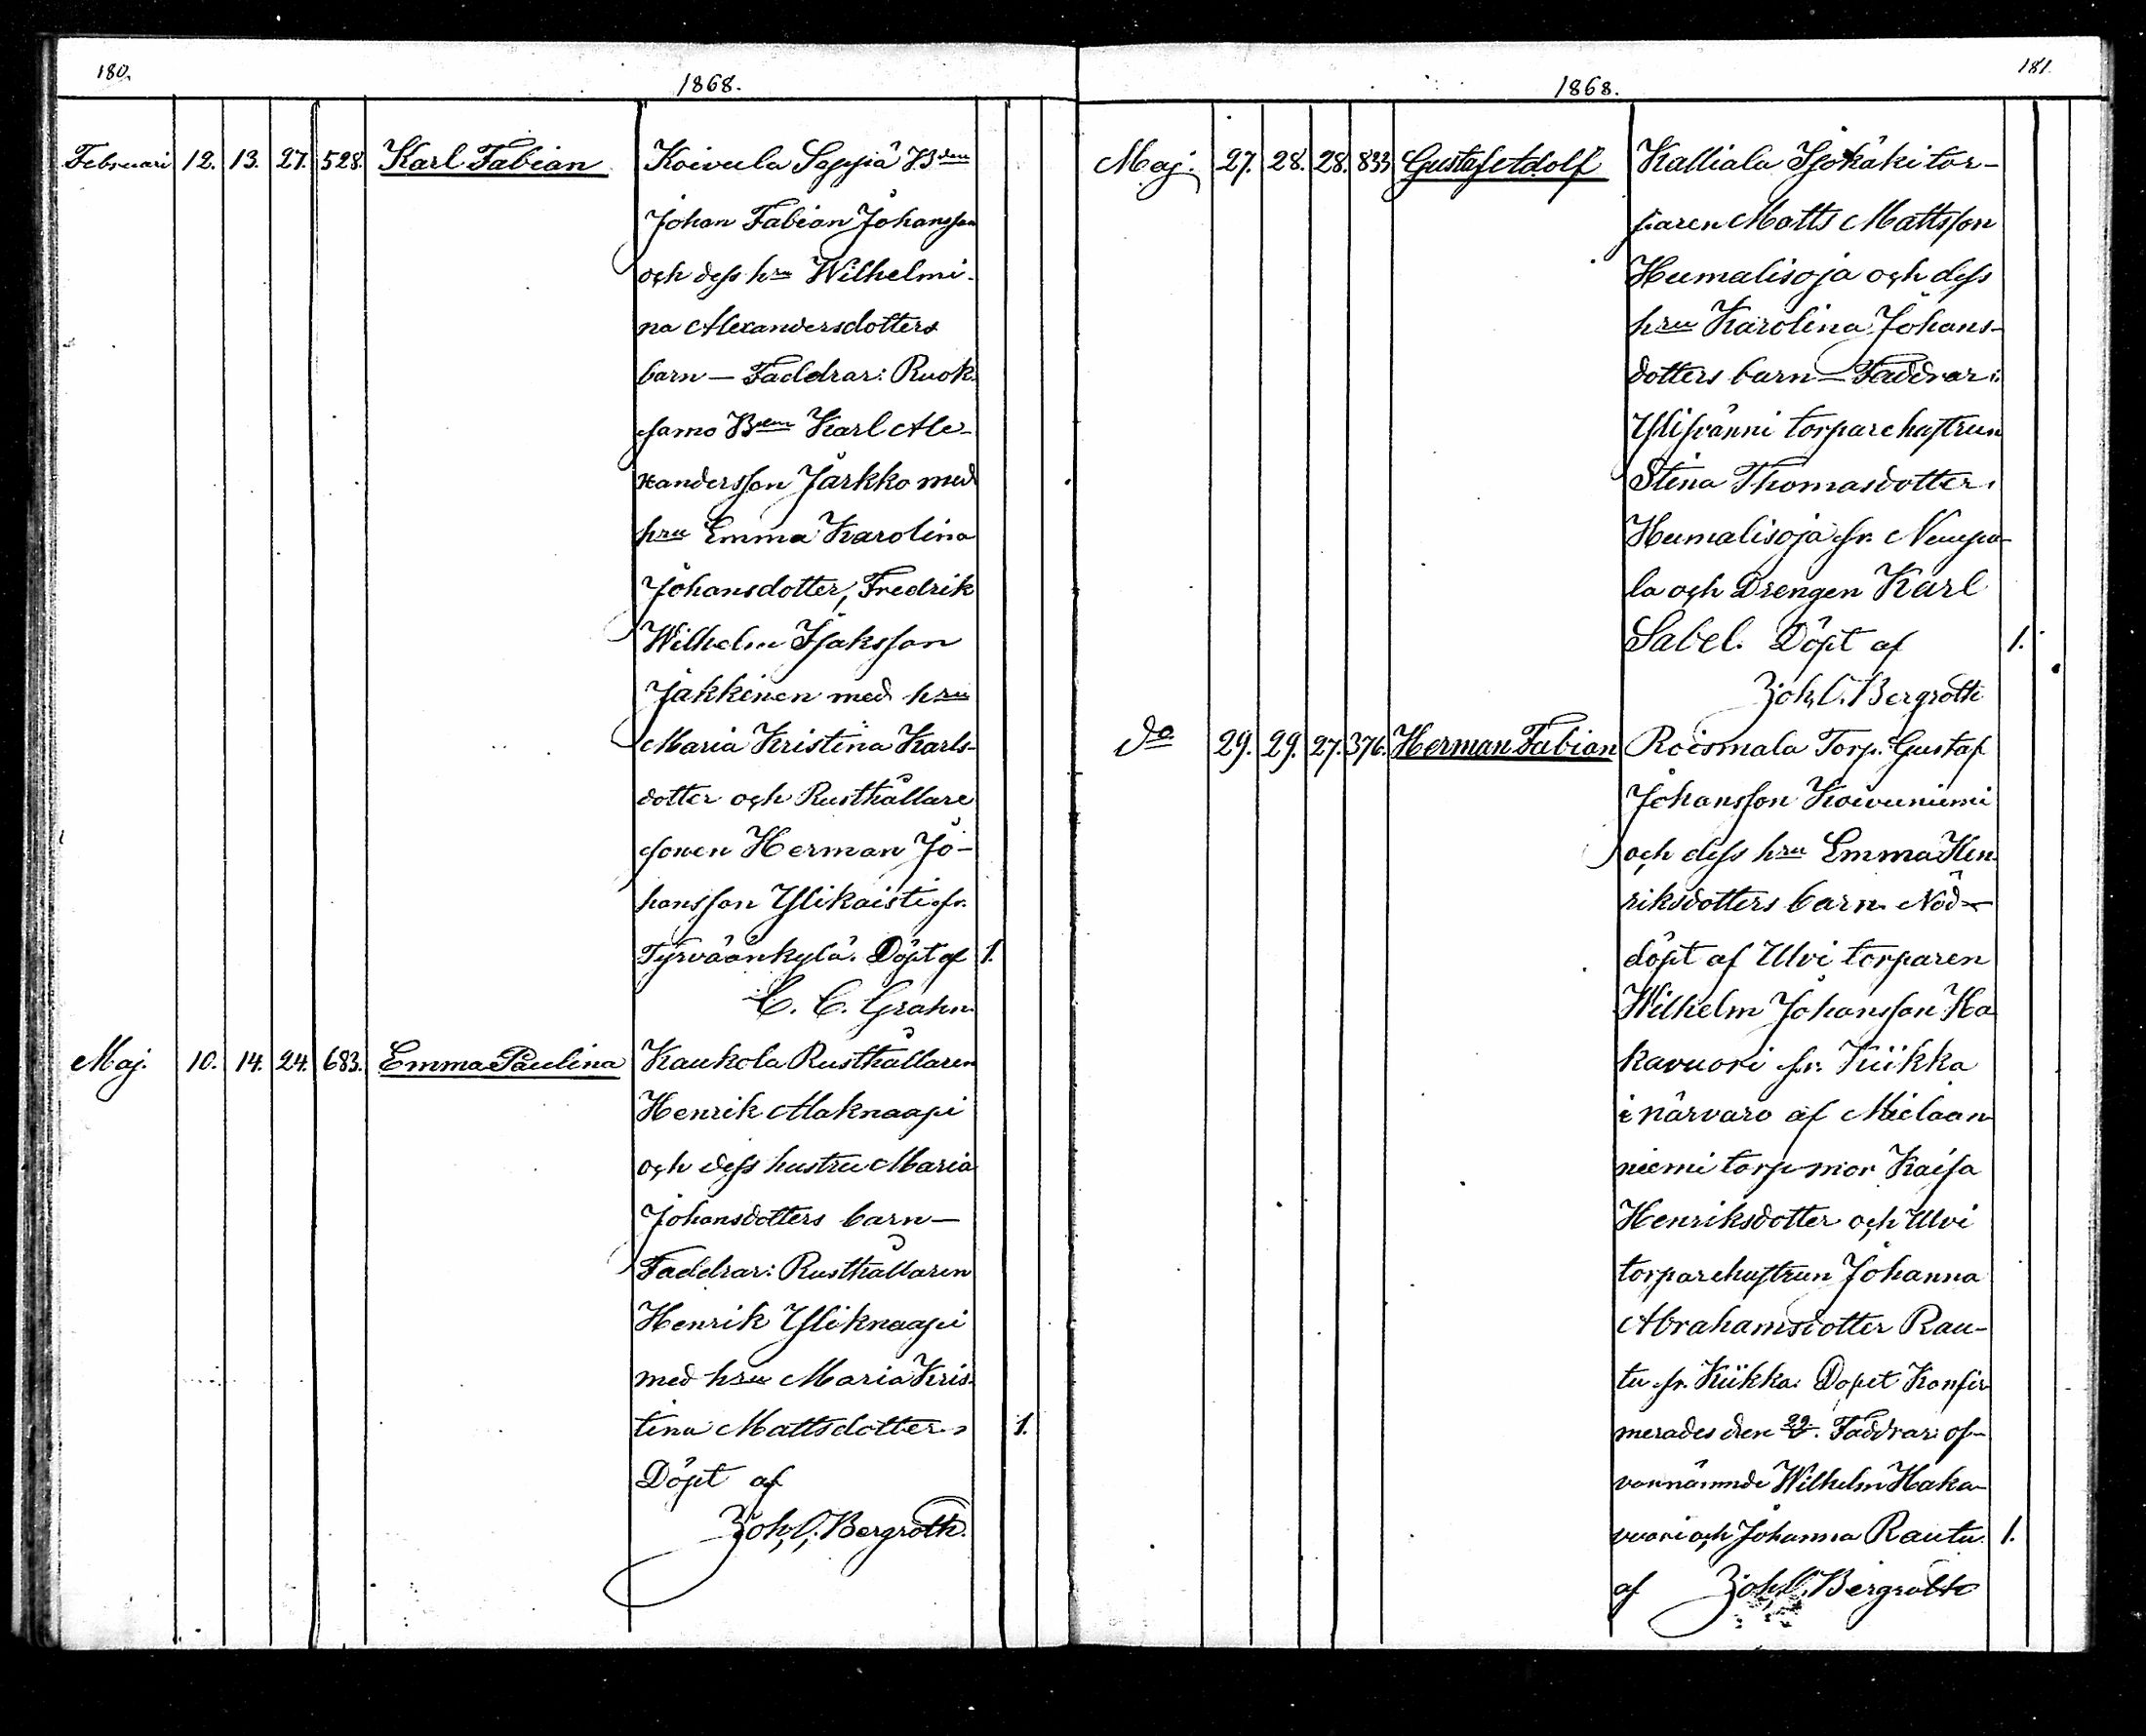 180.
1868.
Februari 12. 13. 27. 528. Karl Fabian Koivula Seppä Bden
Johan Fabian Johansson
och dess hru Wilhelmi-
na Alexandersdotters
barn — Faddrar: Ruok-
samo Bden Karl Ale-
xandersson Järkko med
hru Emma Karolina
Johansdotter, Fredrik
Wilhelm Isaksson
Jäkkinen med hru
Maria Kristina Karls-
dotter och Rusthållare
sonen Herman Jo-
hansson Ylikaisti fr.
Tyrväänkylä. Döpt af 1.
C. C. Grahn.
Maj. 10. 14. 24. 683. Emma Paulina Kaukola Rusthållaren
Henrik Alaknaapi
och dess hustru Maria
Johansdotters barn —
Faddrar: Rusthållaren
Henrik Yliknaapi
med hru Maria Kris-
tina Mattsdotter. 1.
Döpt af
Joh. C. Bergroth.
181.
1868.
Maj. 27. 28. 28. 833 Gustaf Adolf Kalliala Isokäki tor-
paren Matts Mattsson
Humalisoja och dess
hru Karolina Johans-
dotters barn — Faddrar:
Ylisvänni torparehustrun
Stina Thomasdotter
Humalisoja fr. Neupa-
la och Drengen Karl
Sabel. Döpt af 1.
Joh. C. Bergroth
do 29. 29. 27. 376. Herman Fabian Roismala Torp. Gustaf
Johansson Koivuniemi
och dess hru Emma Hen-
riksdotters barn. Nöd-
döpt af Ulvi torparen
Wilhelm Johansson Ha-
kavuori fr. Kiikka
i närvaro af Mielaan-
niemi torp. mor Kaisa
Henriksdotter och Ulvi
torparehustrun Johanna
Abrahamsdotter Rau-
tu fr. Kiikka. Dopet Konfir-
merades den 29. Faddrar: of-
vannämnde Wilhelm Haka-
vuori och Johanna Rautu. 1.
af Joh. C. Bergroth